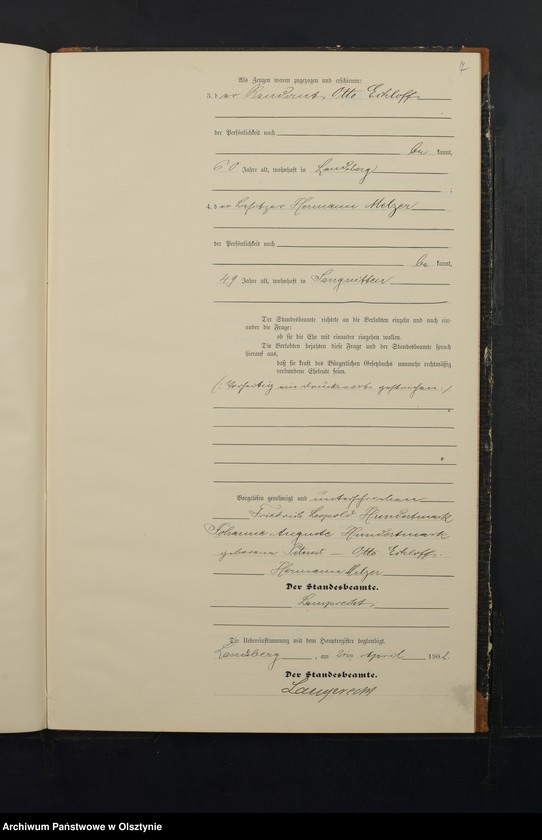 Als Zeugen waren zugezogen und erschienen:
3. der Rendant Otto Eckloff
der Persönlichkeit nach
be kannt,
60 Jahre alt, wohnhaft in Landsberg
;
4. der Besitzer Hermann Melzer
der Persönlichkeit nach
be kannt,
49 Jahre alt, wohnhaft in
Der Standesbeamte richtete an die Verlobten einzeln und nach ein-
ander die Frage:
ob sie die Ehe mit einander eingehen wollen.
Die Verlobten bejahten diese Frage und der Standesbeamte sprach
hierauf aus,
daß sie kraft des Bürgerlichen Gesetzbuchs nunmehr rechtmäßig
verbundene Eheleute seien.
(: Vorseitig ein Druckwort gestrichen :)
Vorgelesen, genehmigt und unterschrieben
Friedrich Leopold Hundertmark
Johanna Auguste Hundertmark
geborene – Otto Eckloff.
Hermann Melzer
Der Standesbeamte.
Lamprecht.
Die Uebereinstimmung mit dem Hauptregister beglaubigt.
Landsberg, am April 190
Der Standesbeamte.
Lamprecht
Archiwum Państwowe w Olsztynie